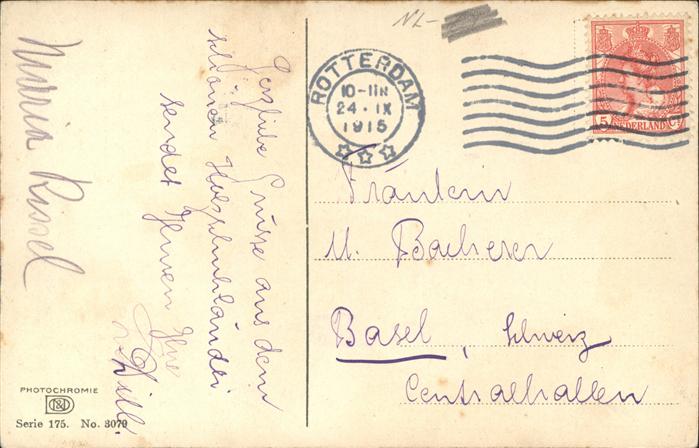 NL-
ROTTERDAM
10-11N
24 · IX
1915
5 NEDERLAND Ct
Maria Rissel
Herzliche Grüsse aus dem
schönen
sendet Ihnen Ihre
Fräulein
M. Bacherer
Basel, Schweiz
Centralhallen
PHOTOCHROMIE
Serie 175. No. 3079